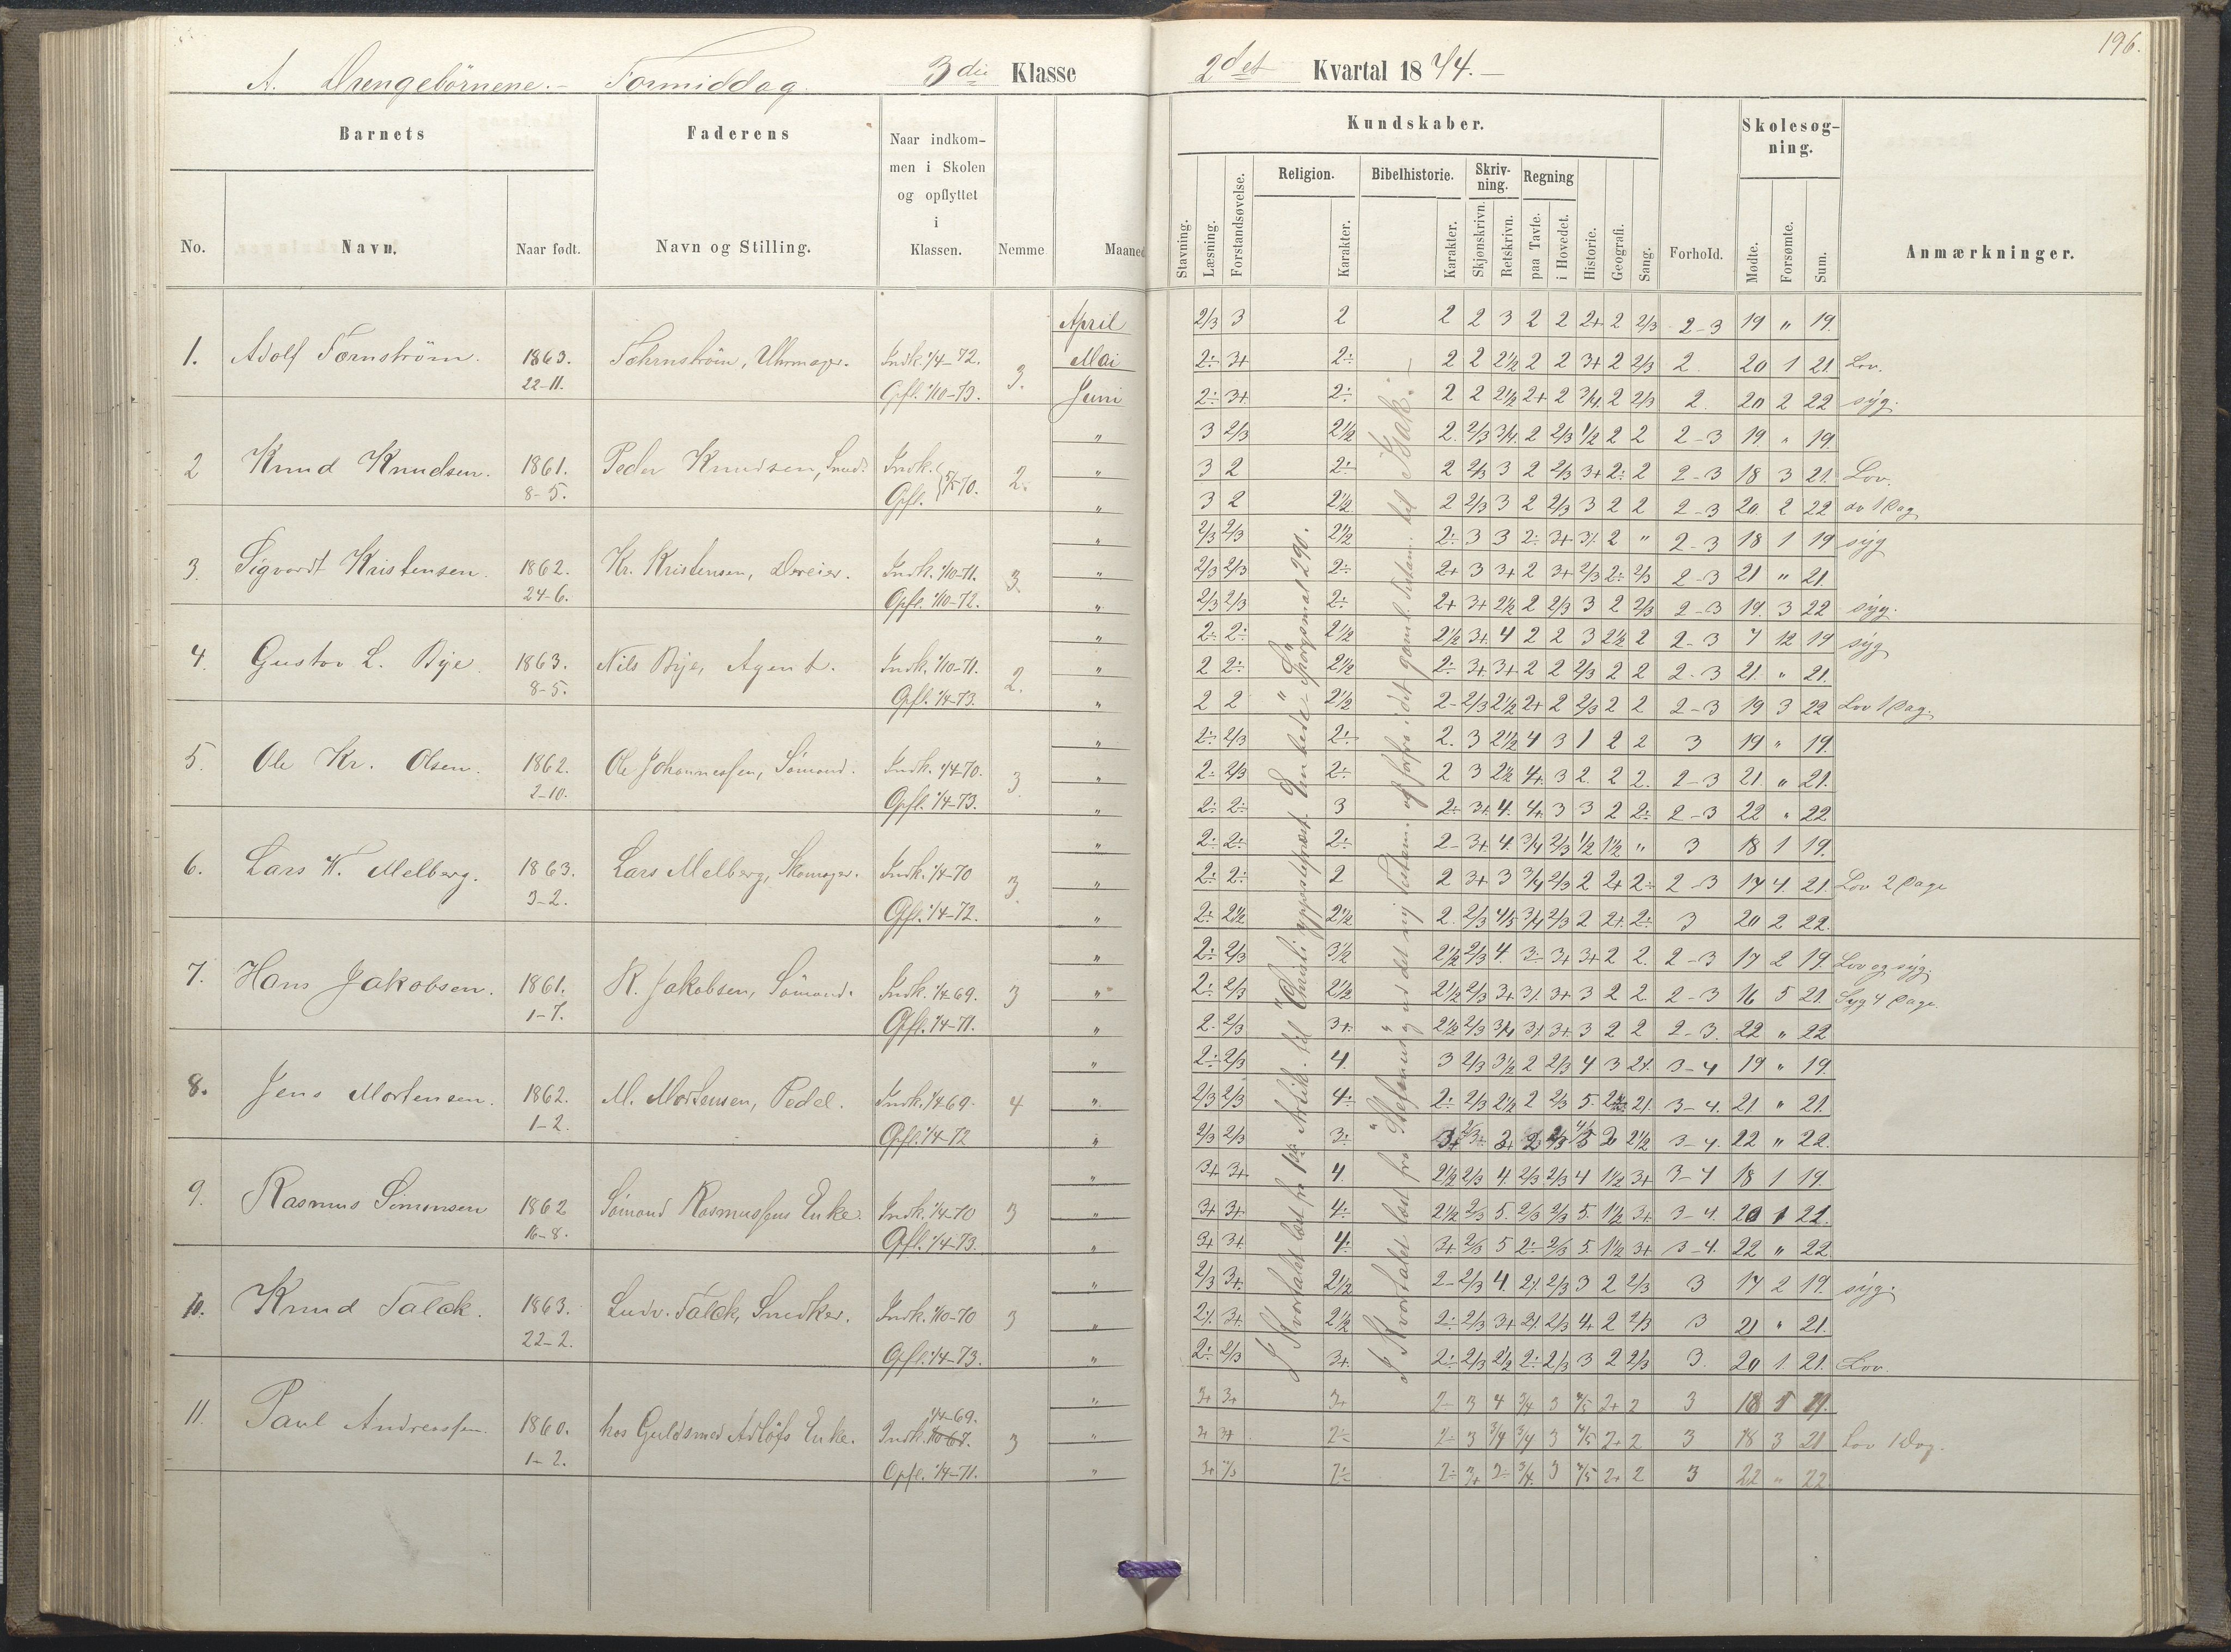 196.
A. Drengebörnene. - Formiddag 3die Klasse 2det Kvartal 1874. -
Barnets
Faderens
Naar indkommen i Skolen og opflyttet i Klassen.
Kundskaber.
Skolesøgning.
Religion. Bibelhistorie. Skrivning. Regning
No. Navn. Naar født. Navn og Stilling. Nemme Maaned
Stavning. Læsning. Forstandsøvelse. Karakter. Karakter. Skjønskrivn. Retskrivn. paa Tavle. i Hovedet. Historie. Geografi. Sang. Forhold. Mødte. Forsømte. Sum. Anmærkninger.
April 2/3 3 2 2 2 3 2 2 2+ 2 2/3 2-3 19 " 19.
1. Adolf Törnström. 1863. Indk. 1/4-72. Mai 2÷ 3+ 2÷ 2 2 2½ 2 2 3+ 2 2/3 2 20 1 21. Lov.
22-11. Opfl. 1/10-73. 3. Juni 2÷ 3+ 2÷ 2 2 2½ 2+ 2 3/4 2 2/3 2. 20 2 22 syg.
" 3 2/3 2½ 2. 2/3 3/4. 2 2/3 1/2 2 2 2-3 19. " 19.
2 Knud Knudsen. 1861. Peder Knudsen, Indk. 2. " 3 2 2÷ 2 2/3 3 2 2/3 3+ 2÷ 2 2-3 18 3 21. Lov.
8-5. Opfl. " 3 2 2½ 2 2/3 3 2 2/3 3 2 2 2-3 20 2 22
" 2/3 2/3 2½ 2÷ 3 3 2÷ 3+ 2 " 2-3 18 1 19 syg
3. Sigvardt Kristensen. 1862. Kr. Kristensen, Dreier. Indk. 1/10-71. 3. " 2/3 2/3 2÷ 2+ 3 3+ 2 3+ 2/3 2÷ 2/3 2-3 21 " 21.
24-6. Opfl. 1/10-72. " 2/3 2/3 2÷ 2+ 3+ 2½ 2 2/3 3 2 2/3 2-3 19. 3 22 syg.
" 2÷ 2÷ 2½ 2½ 3+ 4 2 2 3 2½ 2 2-3 7 12 19 syg
4. Gustav L. Bye. 1863. Nils Bye, Agent. Indk. 1/10-71. 2. " 2 2÷ 2½ 2÷ 3+ 3+ 2 2 2/3 2 2 2-3 21. " 21.
8-5. Opfl. 1/4-73. " 2 2 2½ 2- 2/3 2½ 2+ 2 2/3 2 2 2-3 19 3 22 Lov 1 Dag.
" 2÷ 2/3 2÷ 2. 3 2½ 4 3 1 2 2 3 19 " 19.
5. Ole Kr. Olsen. 1862. Ole Johannessen, Sömand. Indk. 1/4-70. 3. " 2÷ 2/3 2÷ 2 3 2½ 4+ 3 2. 2 2. 2-3 21. " 21.
2-10. Opfl. 1/4-73. " 2÷ 2÷ 3 2÷ 3+ 4. 4+ 3 3 2 2÷ 2-3 22 " 22
" 2÷ 2÷ 2÷ 2- 3+ 4. 3/4 2/3 1/2 1½ " 3 18 1 19.
6. Lars W. Melberg. 1863. Lars Melberg, Skomager. Indk. 1/4-70 3. " 2÷ 2÷ 2 2 3+ 3 3/4 2/3 2 2+ 2÷ 2-3 17 4. 21. Lov 2 Dage
3-2. Opfl. 1/4-72. " 2÷ 2½ 2½ 2. 2/3 4/5 3/4 2/3 2 2+. 2÷ 3 20 2 22.
" 2÷ 2/3 3½ 2½ 2/3 4. 3÷ 3+ 3+ 2 2. 2-3 17 2 19. Lov og syg.
7. Hans Jakobsen. 1861. R. Jakobsen, Sömand. Indk. 1/4 69. 3 " 2÷ 2/3 2½ 2½ 2/3 3+ 3+ 3 2 2. 2-3 16 5 21. Syg 4 Dage.
1-7. Opfl. 1/4-71. " 2- 2/3 3+. 2½ 2/3 3/4 3+ 3 2 2 2-3. 22 " 22
" 2÷ 2/3 4. 3 2/3 3½ 2 2/3 4 3 3-4 19 " 19.
8. Jens Mortensen. 1862. M. Mortensen, Pedel. Indk. 1/4 69. 4 " 2/3 2/3 4÷ 2÷ 2/3 2½ 2 2/3 5. 3-4. 21 " 21.
1-2. Opfl. 1/4-72 " 2/3 2/3 3÷ 2½ 3-4. 22 " 22.
" 3+ 3+ 4. 2½ 2/3 4. 2/3 2/3 4 1½ 3+ 3-4 18 1 19.
9. Rasmus Simonsen 1862 Sömand Rasmussens Enke. Indk. 1/4-70 3 " 3+ 3+ 4÷ 2½ 2/3 5. 2/3 2/3 5. 1½ 3+ 3-4. 20 1 21.
16-8. Opfl. 1/4-73. " 3+ 3+ 4÷ 3+ 2/3 5 2÷ 2/3 5. 1½ 3+ 3-4. 22 " 22.
" 2/3 3+. 2½ 2- 2/3 4. 2/3 3 2 2/3 3 17 2 19. syg.
10. Knud Falck. 1863. Ludv. Falck, Snedker. Indk. 1/10-70 3 " 3+. 2½ 2÷ 2/3 3+ 2/3 4+ 2 2/3 3 21 " 21.
22-2. Opfl. 1/4-73. " 2÷ 2/3 3+. 2÷ 2/3 2½ 2÷ 2/3 3 2 2/3 3. 20 1. 21. Lov.
1/4-69. " 3+ 3+ 3+ 2÷ 3 4 3/4 3 4/5 2+ 2 3 18 1 19.
11. Paul Andreassen. 1860. hos Guldsmed Enke. Indk. 1/10 67. 3 " 3+ 2÷ 2÷ 3 3/4 3/4 3 4/5 2+ 2 3 18 3 21 Lov 1 Dag.
1-2. Opfl. 1/4-71. " 3+ 2÷ 2÷ 3+ 2÷ 3/4. 3 4/5 2+ 2 3 22 " 22.
I Kvartalet læst fra 1ste Artik. til "Christi Embede" Spörgsmål 290.
I Kvartalet læst fra "Stefanus" ud det ny Testam. og forfra i det gamle Testam. til Isak. -